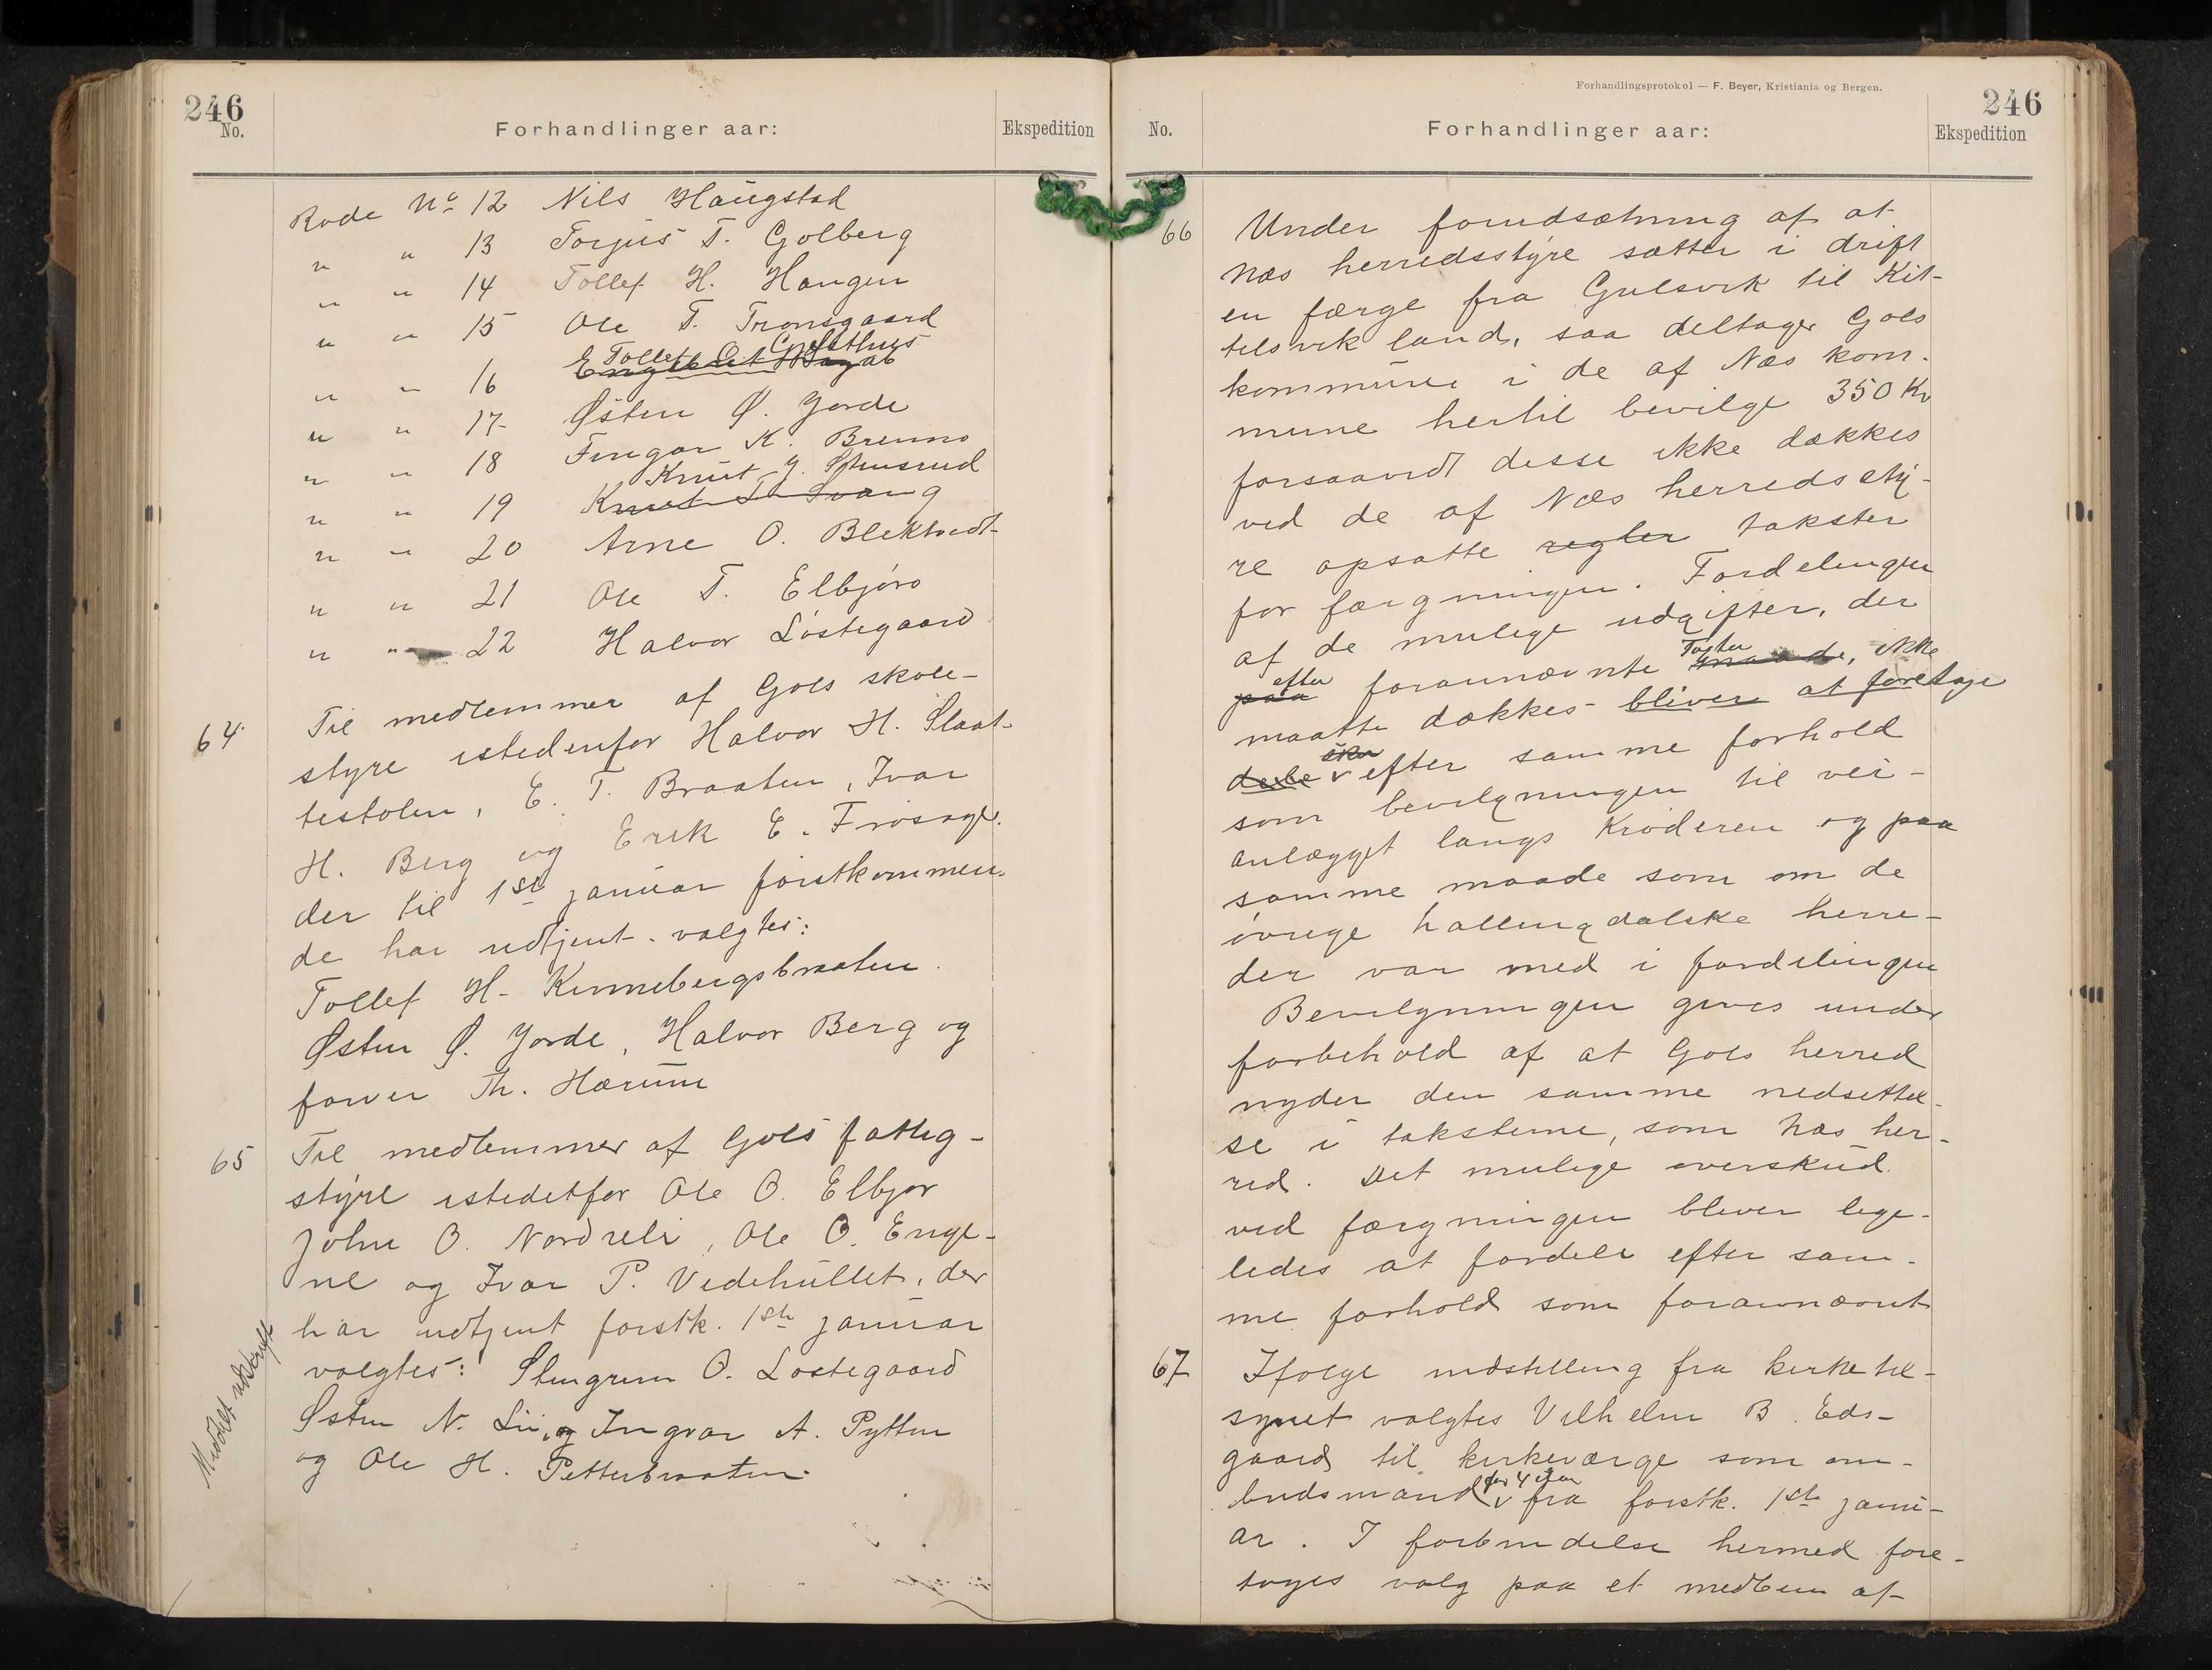 246
No.
Forhandlinger aar:
Ekspedition
Rode No 12 Nils Haugstad
" " 13 Torjus T. Golberg
" " 14 Tollef H. Haugen
" " 15 Ole T. Tronsgaard
Tollef O. Golthus
" " 16
" " 17 Østen Ø. Jorde
" " 18 Fingar K. Brenno
Knut
" " 19 Knut T. Svang
" " 20 Arne O. Blektvedt
" " 21 Ole T. Elbjøro
" " 22 Halvor Løstegaard
64. Til medlemmer af Gols skole-
styre istedenfor Halvor H. Slaat-
testolen, E. T. Braaten, Ivar
H. Berg og Erik E. Frøsage.
der til 1ste januar førstkommen-
de har udtjent. valgtes:
Tollef H. Kinnebergsbraaten.
Østen Ø. Jorde, Halvor Berg og
farver Th. Hærum
65 Til medlemmer af Gols fattig-
styre istedetfor Ole O. Elbjør
John O. Nordreli, Ole O. Enge-
ne og Ivar P. Vedehullet, der
har udtjent førstk. 1ste januar
valgtes: Stengrim O. Løstegaard
Østen N. Lii, og Ingvar A. Pytten
og Ole H. Petterbraaten.
Meddelt udskrift
Forhandlingsprotokol — F. Beyer, Kristiania og Bergen.
246
No.
Forhandlinger aar:
Ekspedition
66 Under forudsætning af at
Næs herredsstyre sætter i drift
en færge fra Gulsvik til Kit-
telsvik land, saa deltager Gols
kommune i de af Næs kom-
mune hertil bevilge 350 Kr
forsaavidt desse ikke dækkes
ved de af Næs herredssty-
re opsatte regler takster
for færgningen. Fordelingen
af de mulige udgifter, der
efter
paa forannævnte maade, ikke
maatte dækkes bliver at foretage
sker
dele v efter samme forhold
som bevilgningen til vei-
anlægget langs Krøderen og paa
samme maade som om de
øvrige hallingdalske herre-
der var med i fordelingen
Bevilgningen gives under
forbehold af at Gols herred
nyder den samme nedsettel-
se i taksterne, som Næs her-
red. Det mulige overskud
ved færgningen bliver lige-
ledes at fordele efter sam-
me forhold som forannævnt
67 Ifølge indstilling fra kirketil-
synet valgtes Vilhelm B. Eds-
gaard til kirkeværge som om-
for 4 aar
budsmand v fra førstk. 1ste janu-
ar. I forbindelse hermed fore-
toges valg paa et medlem af